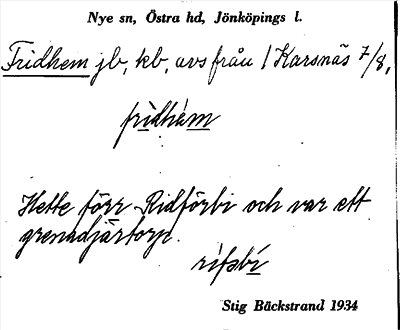 Nye sn, Östra hd, Jönköpings l.
Fridhem jb, kb, avs från 1 Karsnäs 7/8,
fridhém
Hette förr Ridförbi och var ett
grenadjärtorp.
rifsbí
Stig Bäckstrand 1934